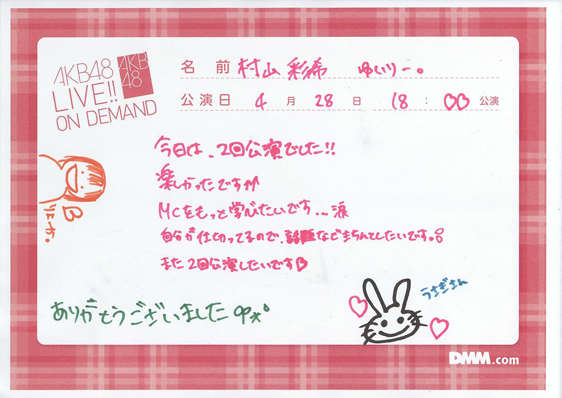 AKB48
LIVE!!
ON DEMAND
AKB
48
名 前 村山 彩希 ゆいりー。
公演日 4 月 28 日 18 : 00 公演
今日は、2回公演でした!!
楽しかったです
MCをもっと学びたいです...涙
自分が仕切ってるので、話題などきちんとしたいです。
また2回公演したいです
りなっか。
うさぎさん
ありがとうございました
DMM.com